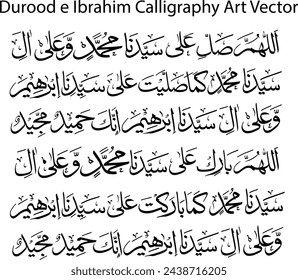 Durood e Ibrahim Calligraphy Art Vector
اَللّٰهُمَّ صَلِّ عَلٰى سَيِّدِنَا مُحَمَّدٍ وَّعَلٰى اٰلِ
سَيِّدِنَا مُحَمَّدٍ كَمَا صَلَّيْتَ عَلٰى سَيِّدِنَا اِبْرٰهِيْمَ
وَعَلٰى اٰلِ سَيِّدِنَا اِبْرٰهِيْمَ اِنَّكَ حَمِيْدٌ مَّجِيْدٌ
اَللّٰهُمَّ بَارِكْ عَلٰى سَيِّدِنَا مُحَمَّدٍ وَّعَلٰى اٰلِ
سَيِّدِنَا مُحَمَّدٍ كَمَا بَارَكْتَ عَلٰى سَيِّدِنَا اِبْرٰهِيْمَ
وَعَلٰى اٰلِ سَيِّدِنَا اِبْرٰهِيْمَ اِنَّكَ حَمِيْدٌ مَّجِيْدٌ
shutterstock.com · 2438716205